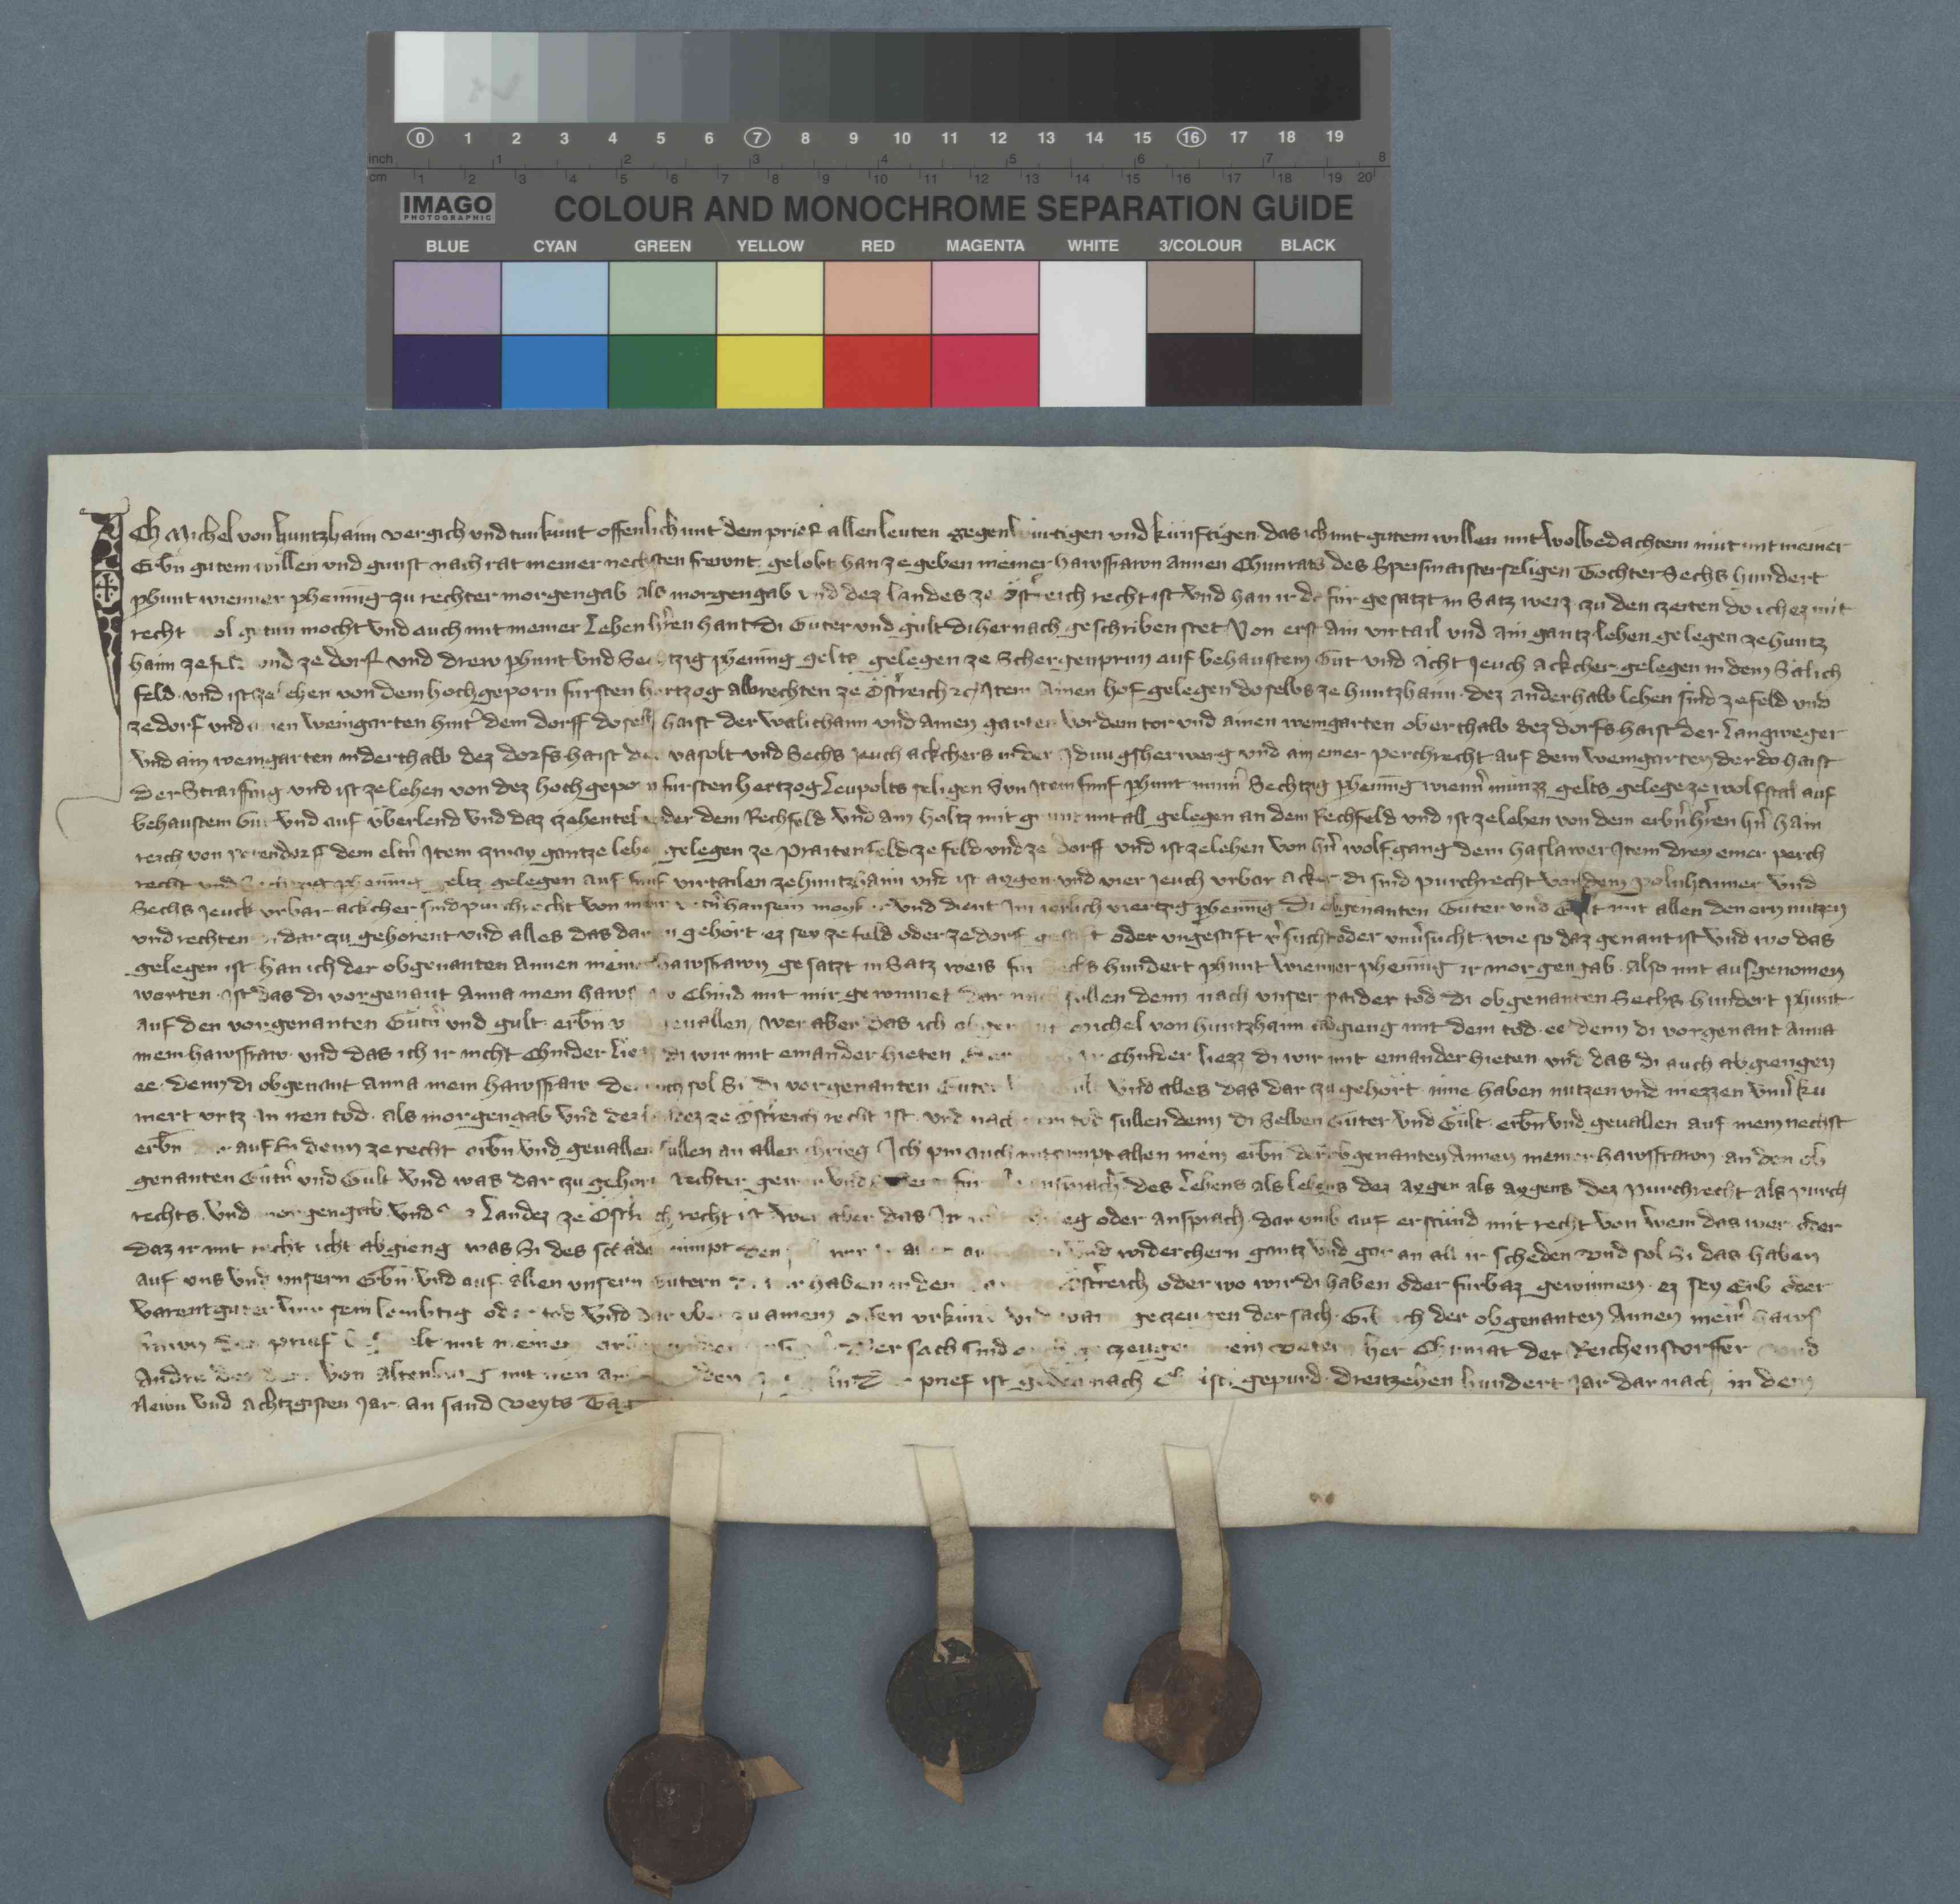 0 1 2 3 4 5 6 7 8 9 10 11 12 13 14 15 16 17 18 19
inch 1 2 3 4 5 6 7 8
cm 1 2 3 4 5 6 7 8 9 10 11 12 13 14 15 16 17 18 19 20
IMAGO
PHOTOGRAPHIC
COLOUR AND MONOCHROME SEPARATION GUIDE
BLUE CYAN GREEN YELLOW RED MAGENTA WHITE 3/COLOUR BLACK
Ich Michel von huntzhaim vergich und tun kunt offenlich mit dem prief allen leuten gegenburtigen und künftigen das ich mit gutem willen mit wolbedachtem müt mit meiner
Erbn gutem willen und gunst nach rat meiner nechsten frewnt gelobt han ze geben meiner hawsfrawn Annen Chunrats des Speismaister seligen Tochter Sechs hundert
phunt wienner phenning zu rechter morgengab als morgengab und dez landes ze Österreich recht ist Und han ir do für gesatzt in Satz weiz zu den czeiten do ich ez mit
recht wol getun mocht Und auch mit meiner Lehen hren hant Di Güter und gult di her nach geschriben stet Von erst ain virtail und ain gantz lehen gelegen ze huntz
haim ze feld und ze dorf und drew phunt und Sechtzig phening gelts gelegen ze Schergenprun auf behaustem Gut und Acht Jeuch ackcher gelegen in dem Salich
feld und ist ze lehen von dem hochgeporn fürsten hertzog Albrechten ze Östreich Item Ainen hof gelegen do selbs ze huntzhaim dez anderhalb lehen sind ze feld und
ze dorf und ainen weingarten hintr dem dorff do selbs haist der Walichaim und Ainen garten vor dem tor und ainen weingarten oberthalb dez dorfs haist der Langweger
Und ain weingarten niderthalb dez dorfs haist der vasolt und Sechs Jeuch ackchers in der und ain emer perchrecht auf dem weingarten der do haist
der Straiffing und ist ze lehen von dez hochgeporn fürsten hertzog Leupolts seligen Sun Item fünf phunt minn Sechtzig phening wienn münzz gelts gelegen ze wolfstal auf
behaustem Gut Und auf überlend Und daz czehentel under dem Rechfeld und ain holtz mit grunt mit all gelegen an dem Rechfeld und ist ze lehen von dem erbn hren hn hain
reich von dem eltn Item czway gantze lehen gelegen ze Praitenfeld ze feld und ze dorff und ist ze lehen von hn wolfgang dem haslawer Item drey emer perch
recht und Sechtzig phening geltz gelegen auf fünf virtailen ze huntzhaim und ist aygen und vier Jeuch urbar acker di sind purchrecht von dem polnhaimer und
Sechs Jeuch urbar ackcher sind purchrecht von hansein und dient Im ierlich viertzig phening Di obgenanten Güter und Gult mit allen den ern nützen
und rechten di dar zu gehorent und alles das dar zu gehort ez sey ze feld oder ze dorf gestift oder ungestift vrsucht oder unvrsucht wie so daz genant ist und wo das
gelegen ist han ich der obgenanten Annen meiner hawsfrawn gesatzt in Satz weis für Sechs hundert phunt wienner phenning ir morgengab Also mit ausgenomen
worten ist das di vorgenant Anna mein hawsfraw Chind mit mir gewinnet dar nach sullen denn nach unser paider tod di obgenanten Sechs hundert phunt
auf den vorgenanten Gütrn und gult erbn und geuallen, wer aber das ich obgenant Michel von huntzhaim abgieng mit dem tod ee denn di vorgenant Anna
mein hawsfraw und das ich ir nicht Chinder liezz di wir mit einander hieten Chinder liezz di wir mit einander hieten und das di auch abgiengen
ee denn di obgenant Anna mein hawsfraw dennoch sol Si di vorgenanten Güter und gult und alles das dar zu gehört inne haben nutzen und niezzen unvrku
mert untz In iren tod als morgengab und dez landez ze Östreich recht ist und nach irm tod sullen denn di Selben Güter und Gült erbn und geuallen auf mein nechst
erbn oder auf denn ze recht erbn und geuallen sullen an allen chrieg Ich pin auch mit sampt allen mein erbn der obgenanten Annen meiner hawsfrawn an den ob
genanten Gütrn und Gult Und was dar zu gehort rechter gewer und für all ansprach des Lehens als lehens dez aygen als aygens dez purchrecht als purch
rechts und morgengab und dez Landez ze Östreich recht ist wer aber das Ir chrieg oder ansprach dar umb auf erstünd mit recht von wem das wer oder
daz ir mit recht icht abgieng was Si des schaden nimpt den und widerchern gantz und gar an all ir scheden und sol Si das haben
auf uns und unsern Erbn und auf allen unsern gütern di wir haben in dem Land ze Österreich oder wo wir di haben oder fürbaz gewinnen ez sey Erb oder
varentgüter wir sein lembtig oder tod Und dar uber zu ainem offen urkund und waren geczeugen der sach Gib ich der obgenanten Annen meinr haws
frawn den prief mit meinem Der sach sind geczeugen mein vater her Chunrat der Reichenstorffer und
Andre von Altenburg mit iren Der prief ist geben nach Christi gepurd dreitzehen hundert Jar dar nach in dem
Newn Und Achtzgisten Jar an sand Veyts Tag